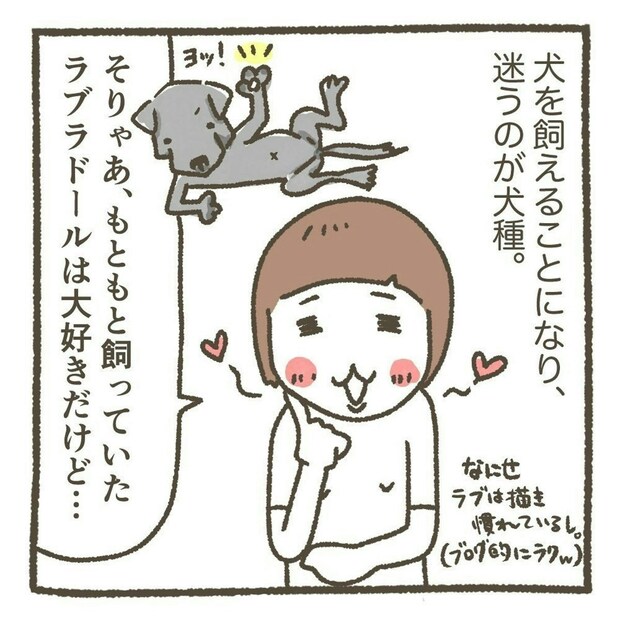 犬を飼えることになり、
迷うのが犬種。
ヨッ!
そりゃあ、もともと飼っていた
ラブラドールは大好きだけど…
なにせ
ラブは描き
慣れているし。
(ブログ的にラクw)